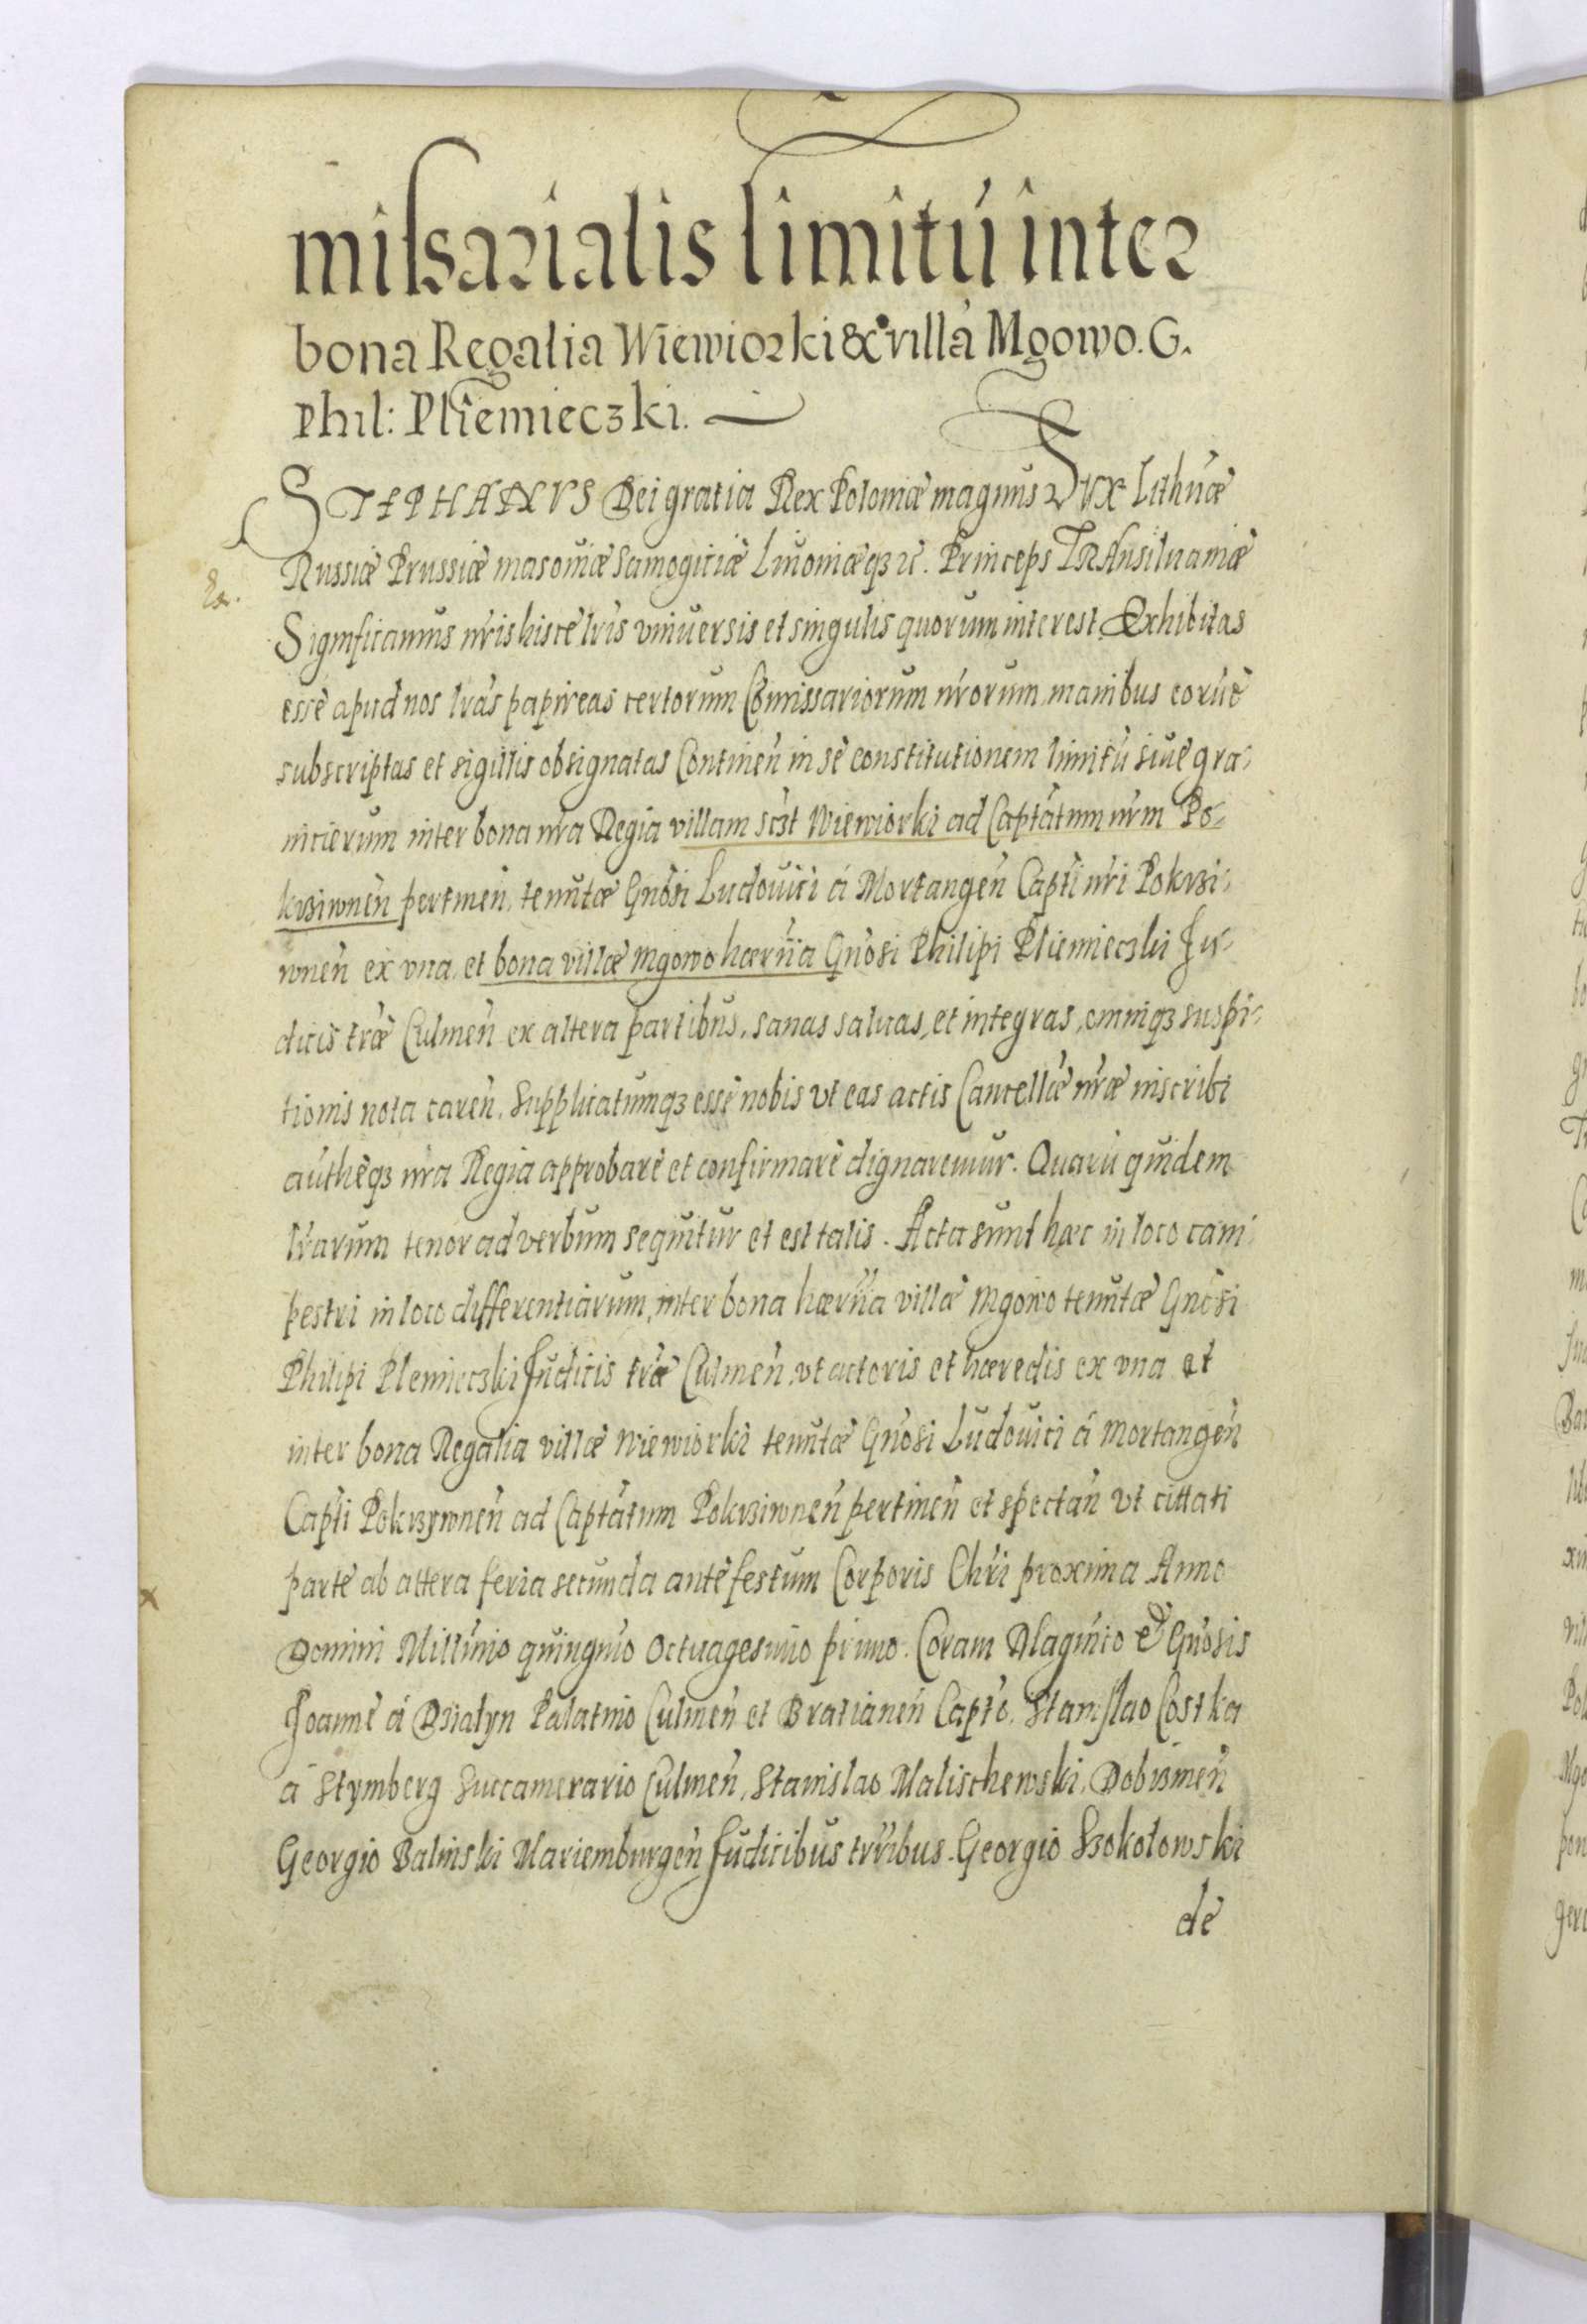 missarialis limitú inter
bona Regalia Wiewiorki & villá Mgowo. G.
Phil: Pliemieczki.
STEPHANVS Dei gratia Rex Poloniæ magnus Dux Lithúæ
Russiæ Prussiæ masouiæ Samogitiæ Liuoniæqꝫ ꝛc. Princeps TRAnsiluaniæ
Significamus nr̃is hisce lr̃is vniuersis et singulis quorum interest. Exhibitas
esse apud nos lr̃as papireas certorum Com̃issariorum nr̃orum, manibus eorúꝫ
subscriptas et sigillis obsignatas Continen̄ in se constitutionem limitú siue gra-
nicierum inter bona nr̃a Regia villam sczt Wiewiorki ad Capt̃atum nr̃m Po-
krziwnen̄ pertinen̄, tenutæ Gñosi Ludouici á Mortangen̄ Capt̃i nr̃i Pokrzi-
wnen̄ ex vna, et bona villæ Mgowo hær̃ria Gñosi Philipi Pliemieczki Ju-
dicis tr̃æ Culmen̄ ex altera partibus, sanas saluas, et integras, omniqꝫ suspi-
tionis nota caren̄. Supplicatumqꝫ esse nobis vt eas actis Cancellr̃iæ nr̃æ inscribi
authẽqꝫ nr̃a Regia approbare et confirmare dignaremur. Quarú quidem
lr̃arum tenor ad verbum sequitur et est talis. Acta sunt hæc in loco cam
pestri in loco differentiarum, inter bona hær̃ria villæ Mgowo tenutæ Gñosi
Philipi Plemieczki Judicis tr̃æ Culmen̄, vt actoris et hæredis ex vna et
inter bona Regalia villæ Wiewiorki tenutæ Gñosi Ludouici á Mortangen̄
Capt̃i Pokrzywnen̄ ad Capt̃atum Pokrziwnen̄ pertinen̄ et spectan̄ vt cittati
parte ab altera feria secunda ante festum Corporis Chr̃i proxima Anno
Domini Millñio quingñio Octuagesimo primo. Coram Magñico et Gñosis
Joanne á Dzialyn Palatino Culmen̄ et Bratianen̄ Capt̃o. Stanislao Costka
á Stymberg Succamerario Culmen̄, Stanislao Malischewski, Dobrinen̄
Georgio Balinski Mariemburgen̄ Judicibus tr̃ribus. Georgio Szokolowski
de